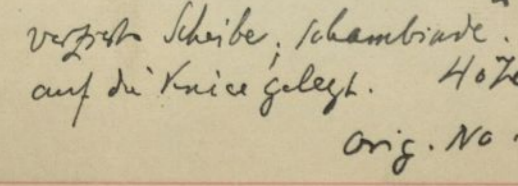 verzierte Scheibe; Schambinde.
auf die Kniee gelegt. 40
Orig. No